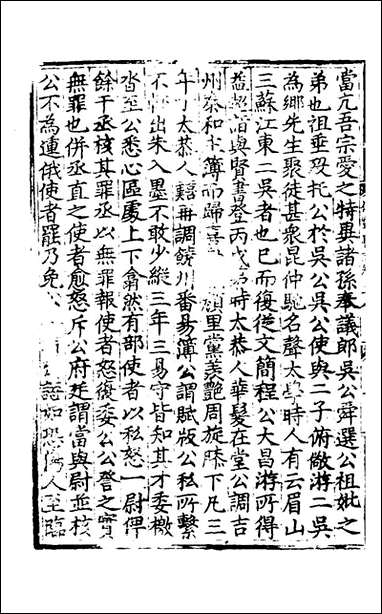 當亢吾宗愛之特異諸孫奉議郎吳公舜選公祖妣之
弟也祖垂歿托公於吳公吳公使與二子俯儆游二吳
為鄉先生聚徒甚衆昆仲馳名聲太學時人有云眉山
三蘇江東二吳者也已而復從文簡程公大昌游所得
益超詣與賢書登丙戌第時太恭人華髮在堂公調吉
州泰和主簿而歸喜 顏里黨羨艷周旋膝下凡三
年丁太恭人艱再調饒州番昜簿公謂賦版公私所繫
不 出朱入墨不敢少縱三年三易守皆知其才委檄
沓至公悉心區處上下翕然有部使者以私怒一尉俾
餘干丞核其罪丞以無罪報使者怒復委公公謦之實
無罪也併丞直之使者愈怒斥公府廷謂當與尉並核
公不為連俄使者罷乃免 語如恐傷人至臨